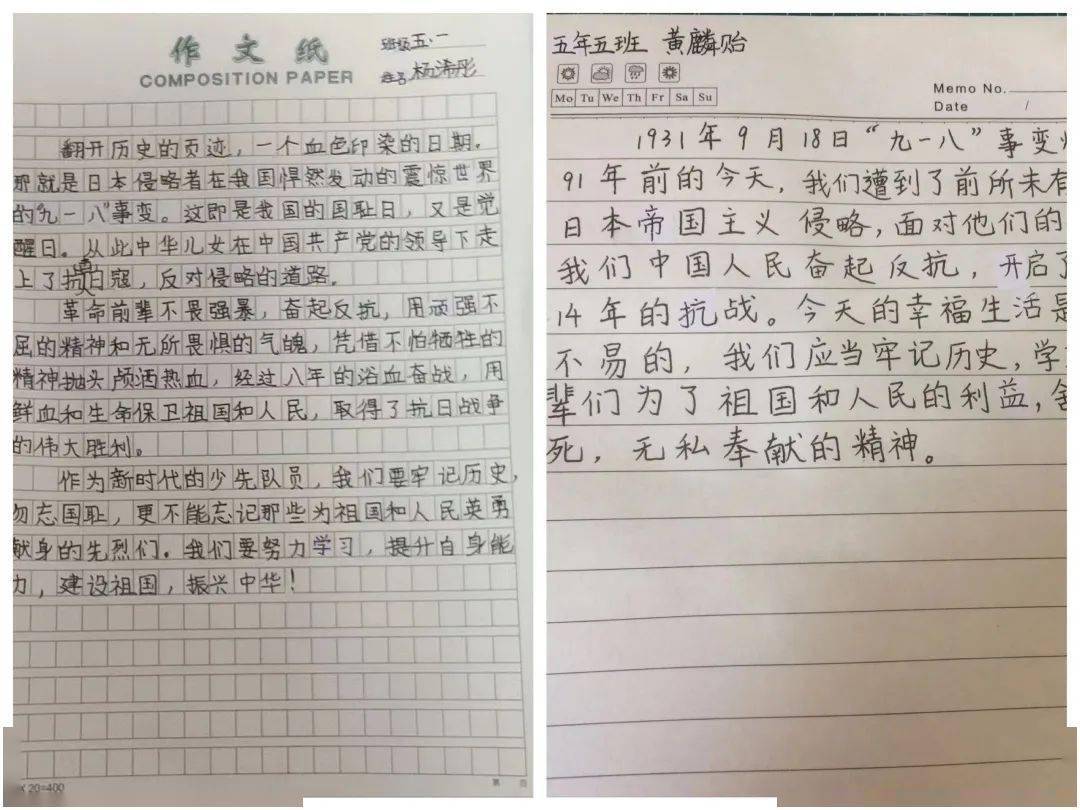 作文纸
COMPOSITION PAPER
班级五、一
姓名杨浠彤
翻开历史的页迹，一个血色印染的日期。
那就是日本侵略者在我国悍然发动的震惊世界
的“九一八”事变。这即是我国的国耻日，又是觉
醒日。从此中华儿女在中国共产党的领导下走
上了抗日寇，反对侵略的道路。
革命前辈不畏强暴，奋起反抗，用顽强不
屈的精神和无所畏惧的气魄，凭借不怕牺牲的
精神抛头颅洒热血，经过八年的浴血奋战，用
鲜血和生命保卫祖国和人民，取得了抗日战争
的伟大胜利。
作为新时代的少先队员，我们要牢记历史，
勿忘国耻，更不能忘记那些为祖国和人民英勇
献身的先烈们。我们要努力学习，提升自身能
力，建设祖国，振兴中华！
20=400
第 页
五年五班 黄麟贻
Mo Tu We Th Fr Sa Su
Memo No.
Date /
1931年9月18日“九一八”事变
91年前的今天，我们遭到了前所未有
日本帝国主义侵略，面对他们的
我们中国人民奋起反抗，开启了
14年的抗战。今天的幸福生活是
不易的，我们应当牢记历史，学
辈们为了祖国和人民的利益，舍
死，无私奉献的精神。